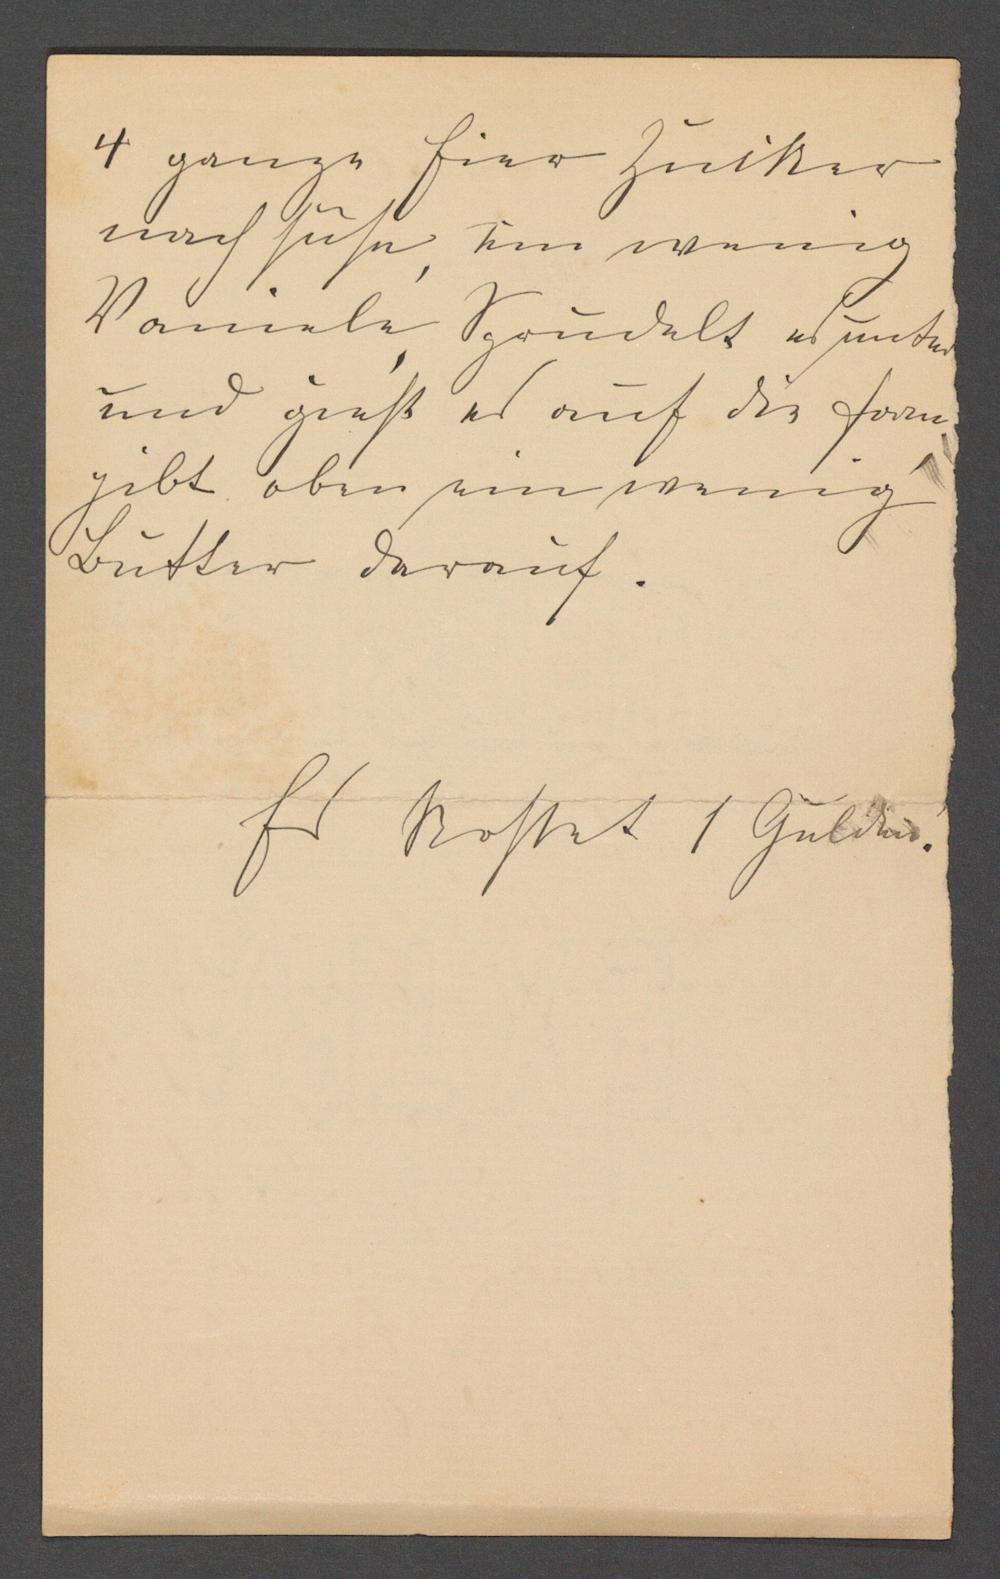 4 ganze Eier Zuiker
nach süse, ein wenig
Vaniele, Sprudelt es unter
und gießt es auf die form,
gibt oben ein wenig
Butter darauf.
Es Kostet 1 Gulden!